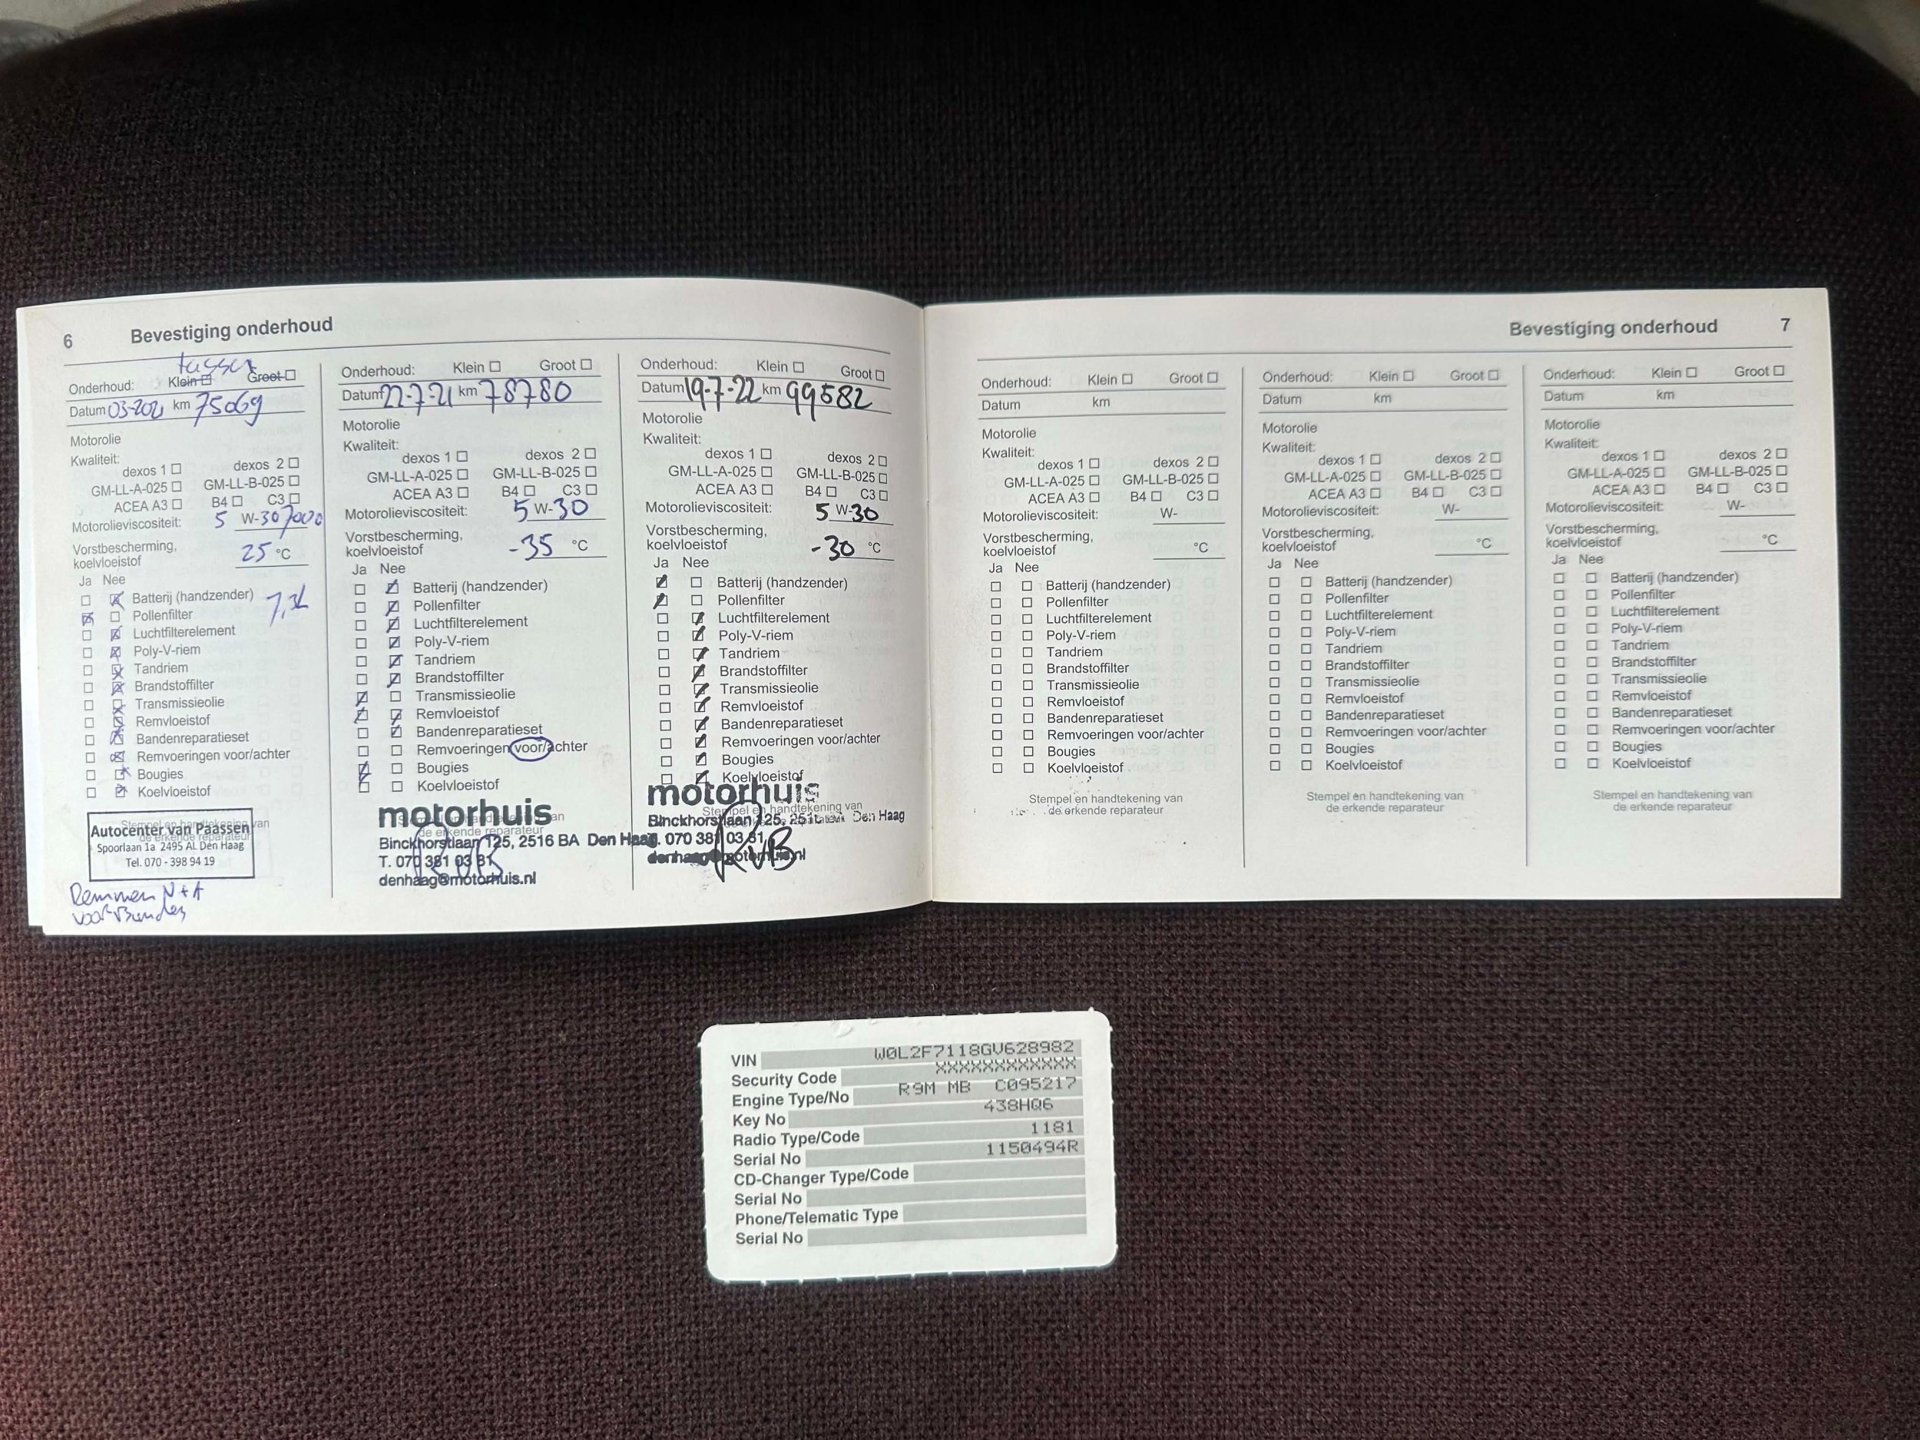 6 Bevestiging onderhoud
tussen
Onderhoud: Klein ☐ Groot ☐
Datum 03-2021 km 75069
Motorolie
Kwaliteit:
dexos 1 ☐ dexos 2 ☐
GM-LL-A-025 ☐ GM-LL-B-025 ☐
ACEA A3 ☐ B4 ☐ C3 ☐
Motorolieviscositeit: 5 W-30
Vorstbescherming,
koelvloeistof 25 °C
Ja Nee
☐ ☒ Batterij (handzender)
☒ ☐ Pollenfilter
☐ ☒ Luchtfilterelement
☐ ☒ Poly-V-riem
☐ ☒ Tandriem
☐ ☒ Brandstoffilter
☐ ☒ Transmissieolie
☐ ☒ Remvloeistof
☐ ☒ Bandenreparatieset
☐ ☒ Remvoeringen voor/achter
☐ ☒ Bougies
☐ ☒ Koelvloeistof
Stempel en handtekening van
de erkende reparateur
Autocenter van Paassen
Spoorlaan 1a 2495 AL Den Haag
Tel. 070 - 398 94 19
Remmen V+A
Onderhoud: Klein ☐ Groot ☐
Datum 22-7-21 km 78780
Motorolie
Kwaliteit:
dexos 1 ☐ dexos 2 ☐
GM-LL-A-025 ☐ GM-LL-B-025 ☐
ACEA A3 ☐ B4 ☐ C3 ☐
Motorolieviscositeit: 5 W-30
Vorstbescherming,
koelvloeistof -35 °C
Ja Nee
☐ ☑ Batterij (handzender)
☐ ☑ Pollenfilter
☐ ☑ Luchtfilterelement
☐ ☑ Poly-V-riem
☐ ☑ Tandriem
☐ ☑ Brandstoffilter
☑ ☐ Transmissieolie
☑ ☑ Remvloeistof
☐ ☑ Bandenreparatieset
☐ ☐ Remvoeringen voor/achter
☑ ☐ Bougies
☐ ☐ Koelvloeistof
Stempel en handtekening van
de erkende reparateur
motorhuis
Binckhorstlaan 125, 2516 BA Den Haag
T. 070 381 03 81
denhaag@motorhuis.nl
Onderhoud: Klein ☐ Groot ☐
Datum 19-7-22 km 99582
Motorolie
Kwaliteit:
dexos 1 ☐ dexos 2 ☐
GM-LL-A-025 ☐ GM-LL-B-025 ☐
ACEA A3 ☐ B4 ☐ C3 ☐
Motorolieviscositeit: 5 W-30
Vorstbescherming,
koelvloeistof -30 °C
Ja Nee
☑ ☐ Batterij (handzender)
☑ ☐ Pollenfilter
☐ ☑ Luchtfilterelement
☐ ☑ Poly-V-riem
☐ ☑ Tandriem
☐ ☑ Brandstoffilter
☐ ☑ Transmissieolie
☐ ☑ Remvloeistof
☐ ☑ Bandenreparatieset
☐ ☑ Remvoeringen voor/achter
☐ ☑ Bougies
☐ ☑ Koelvloeistof
Stempel en handtekening van
de erkende reparateur
motorhuis
Binckhorstlaan 125, Den Haag
T. 070 381 03 81
denhaag@motorhuis.nl
Bevestiging onderhoud 7
Onderhoud: Klein ☐ Groot ☐
Datum km
Motorolie
Kwaliteit:
dexos 1 ☐ dexos 2 ☐
GM-LL-A-025 ☐ GM-LL-B-025 ☐
ACEA A3 ☐ B4 ☐ C3 ☐
Motorolieviscositeit: W-
Vorstbescherming,
koelvloeistof °C
Ja Nee
☐ ☐ Batterij (handzender)
☐ ☐ Pollenfilter
☐ ☐ Luchtfilterelement
☐ ☐ Poly-V-riem
☐ ☐ Tandriem
☐ ☐ Brandstoffilter
☐ ☐ Transmissieolie
☐ ☐ Remvloeistof
☐ ☐ Bandenreparatieset
☐ ☐ Remvoeringen voor/achter
☐ ☐ Bougies
☐ ☐ Koelvloeistof
Stempel en handtekening van
de erkende reparateur
Onderhoud: Klein ☐ Groot ☐
Datum km
Motorolie
Kwaliteit:
dexos 1 ☐ dexos 2 ☐
GM-LL-A-025 ☐ GM-LL-B-025 ☐
ACEA A3 ☐ B4 ☐ C3 ☐
Motorolieviscositeit: W-
Vorstbescherming,
koelvloeistof °C
Ja Nee
☐ ☐ Batterij (handzender)
☐ ☐ Pollenfilter
☐ ☐ Luchtfilterelement
☐ ☐ Poly-V-riem
☐ ☐ Tandriem
☐ ☐ Brandstoffilter
☐ ☐ Transmissieolie
☐ ☐ Remvloeistof
☐ ☐ Bandenreparatieset
☐ ☐ Remvoeringen voor/achter
☐ ☐ Bougies
☐ ☐ Koelvloeistof
Stempel en handtekening van
de erkende reparateur
Onderhoud: Klein ☐ Groot ☐
Datum km
Motorolie
Kwaliteit:
dexos 1 ☐ dexos 2 ☐
GM-LL-A-025 ☐ GM-LL-B-025 ☐
ACEA A3 ☐ B4 ☐ C3 ☐
Motorolieviscositeit: W-
Vorstbescherming,
koelvloeistof °C
Ja Nee
☐ ☐ Batterij (handzender)
☐ ☐ Pollenfilter
☐ ☐ Luchtfilterelement
☐ ☐ Poly-V-riem
☐ ☐ Tandriem
☐ ☐ Brandstoffilter
☐ ☐ Transmissieolie
☐ ☐ Remvloeistof
☐ ☐ Bandenreparatieset
☐ ☐ Remvoeringen voor/achter
☐ ☐ Bougies
☐ ☐ Koelvloeistof
Stempel en handtekening van
de erkende reparateur
VIN W0L2F7118GV628982
Security Code XXXXXXXXXXXX
Engine Type/No R9M MB C095217
Key No 438HQ6
Radio Type/Code 1181
Serial No 1150494R
CD-Changer Type/Code
Serial No
Phone/Telematic Type
Serial No